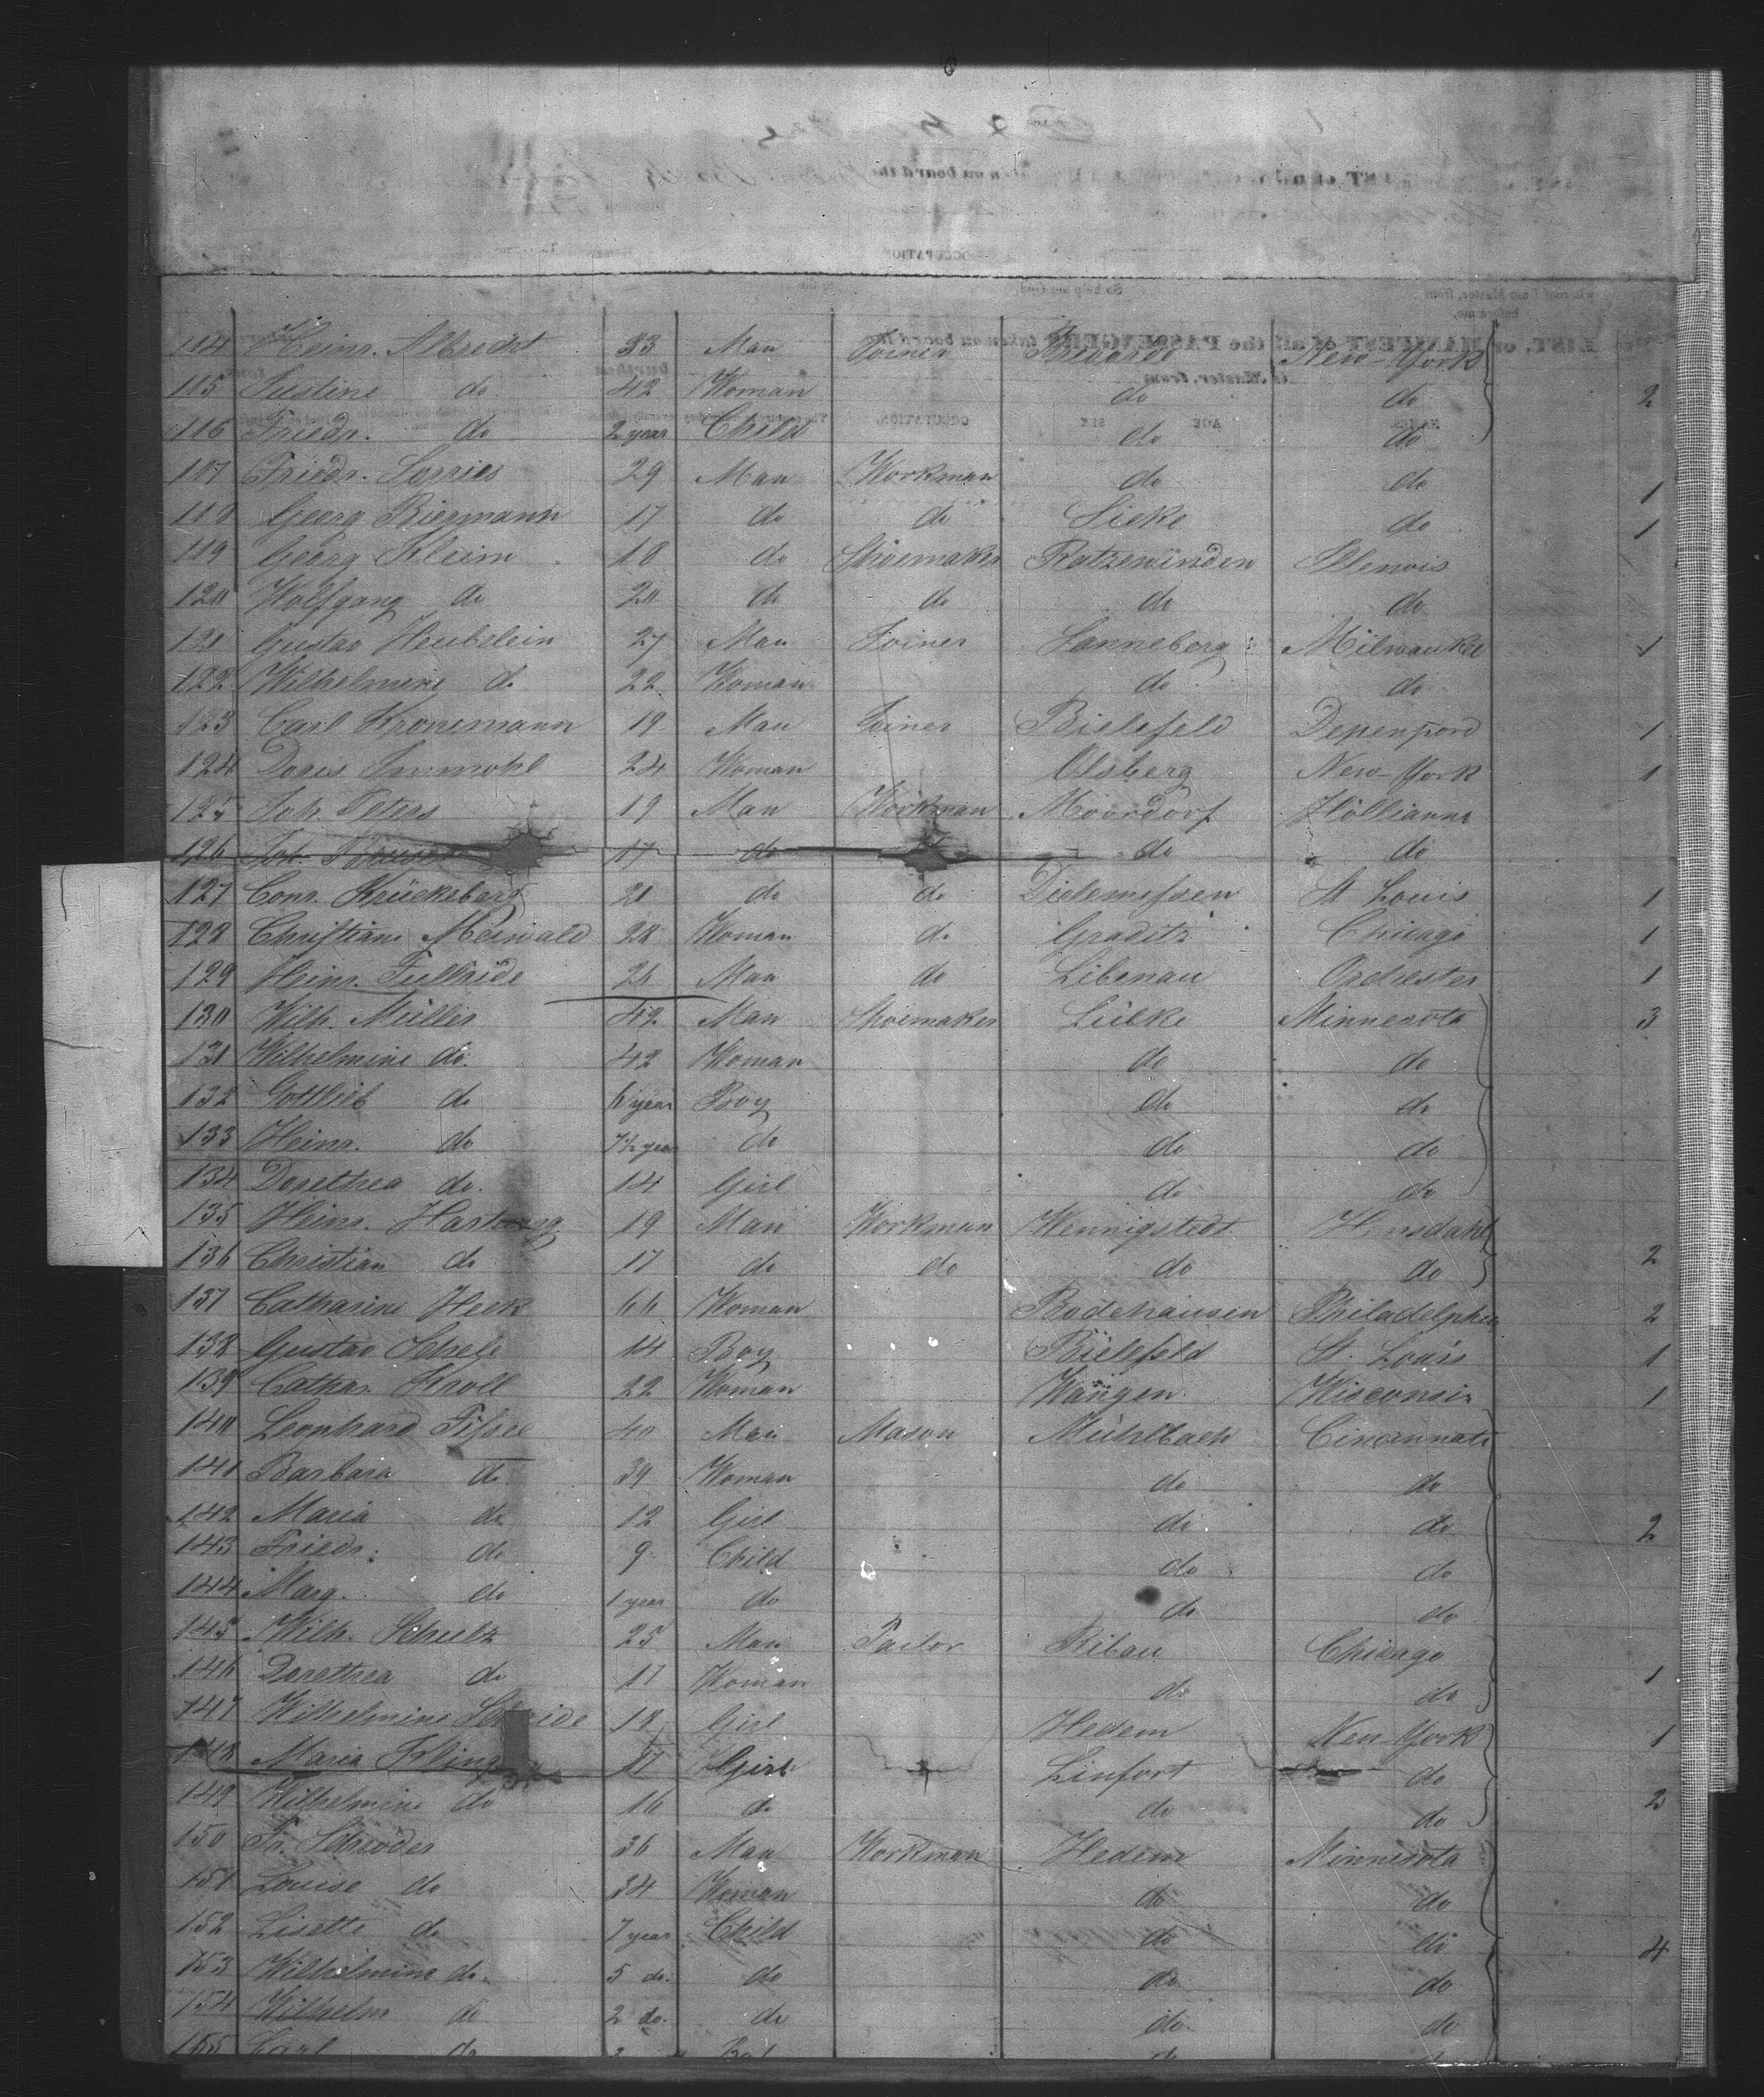 114 Heinr. Albrecht 33 Man Joiner New-York
115 Justine do 42 Woman do do 2
116 Friedr. do 2 year Child do do
117 Friedr. Lorries 29 Man Workman do do 1
118 Georg Biermann 17 do do Lieke do 1
119 Georg Kleim 18 do Shoemaker Ratzewinden Illenois
120 Wolfgang do 20 do do do do
121 Gustav Heubelein 27 Man Joiner Sanneberg Milwaukee 1
122 Wilhelmine do 22 Woman do do
123 Carl Kronemann 19 Man Joiner Bielefeld Depenpord 1
124 Doris Immohl 24 Woman Olsberg New-York 1
125 Joh. Peters 19 Man Workman Moordorf
126 Joh. 17 do do do
127 Conr. Krückeberg 21 do do Dielemissen St Louis 1
128 Christiane Meiwald 28 Woman do Graditz Chicago 1
129 Heinr. 21 Man do Libenau Orchester 1
130 Wilh. Müller 42 Man Shoemaker Lübke Minnesota 3
131 Wilhelmine do. 42 Woman do do
132 Gottlieb do 6 year Boy do do
133 Heinr. do 7½ year do do do
134 Dorethea do. 14 Girl do do
135 Heinr. Hartwig 19 Man Workman Wennigstedt
136 Christian do 17 do do do do 2
137 Catharine Heek 66 Woman Bodehausen Philadelphia 2
138 Gustav Schele 14 Boy Bielefeld St. Louis 1
139 Cathar. Kroll 22 Woman Wangen Wisconsin 1
140 Leonhard 40 Man Mason Mühlbach Cincinnati
141 Barbara do 39 Woman do do
142 Maria do 12 Girl do do 2
143 Friedr. do 9 Child do do
144 Marg. do 1 year do do do
145 Wilh. Schulz 25 Man Tailor Ribau Chicago
146 Dorethea do 17 Woman do do 1
147 Wilhelmine 18 Girl Hedem New-York 1
148 Maria Kling 17 Girl Linfort do
149 Wilhelmine do 16 do do do 2
150 Fr. Schröder 36 Man Workman Hedem Minnesota
151 Louise do 34 Woman do do
152 Lisette do 7 year Child do do 4
153 Wilhelmine do. 5 do. do do do
154 Wilhelm do 2 do. do do do
155 Carl do